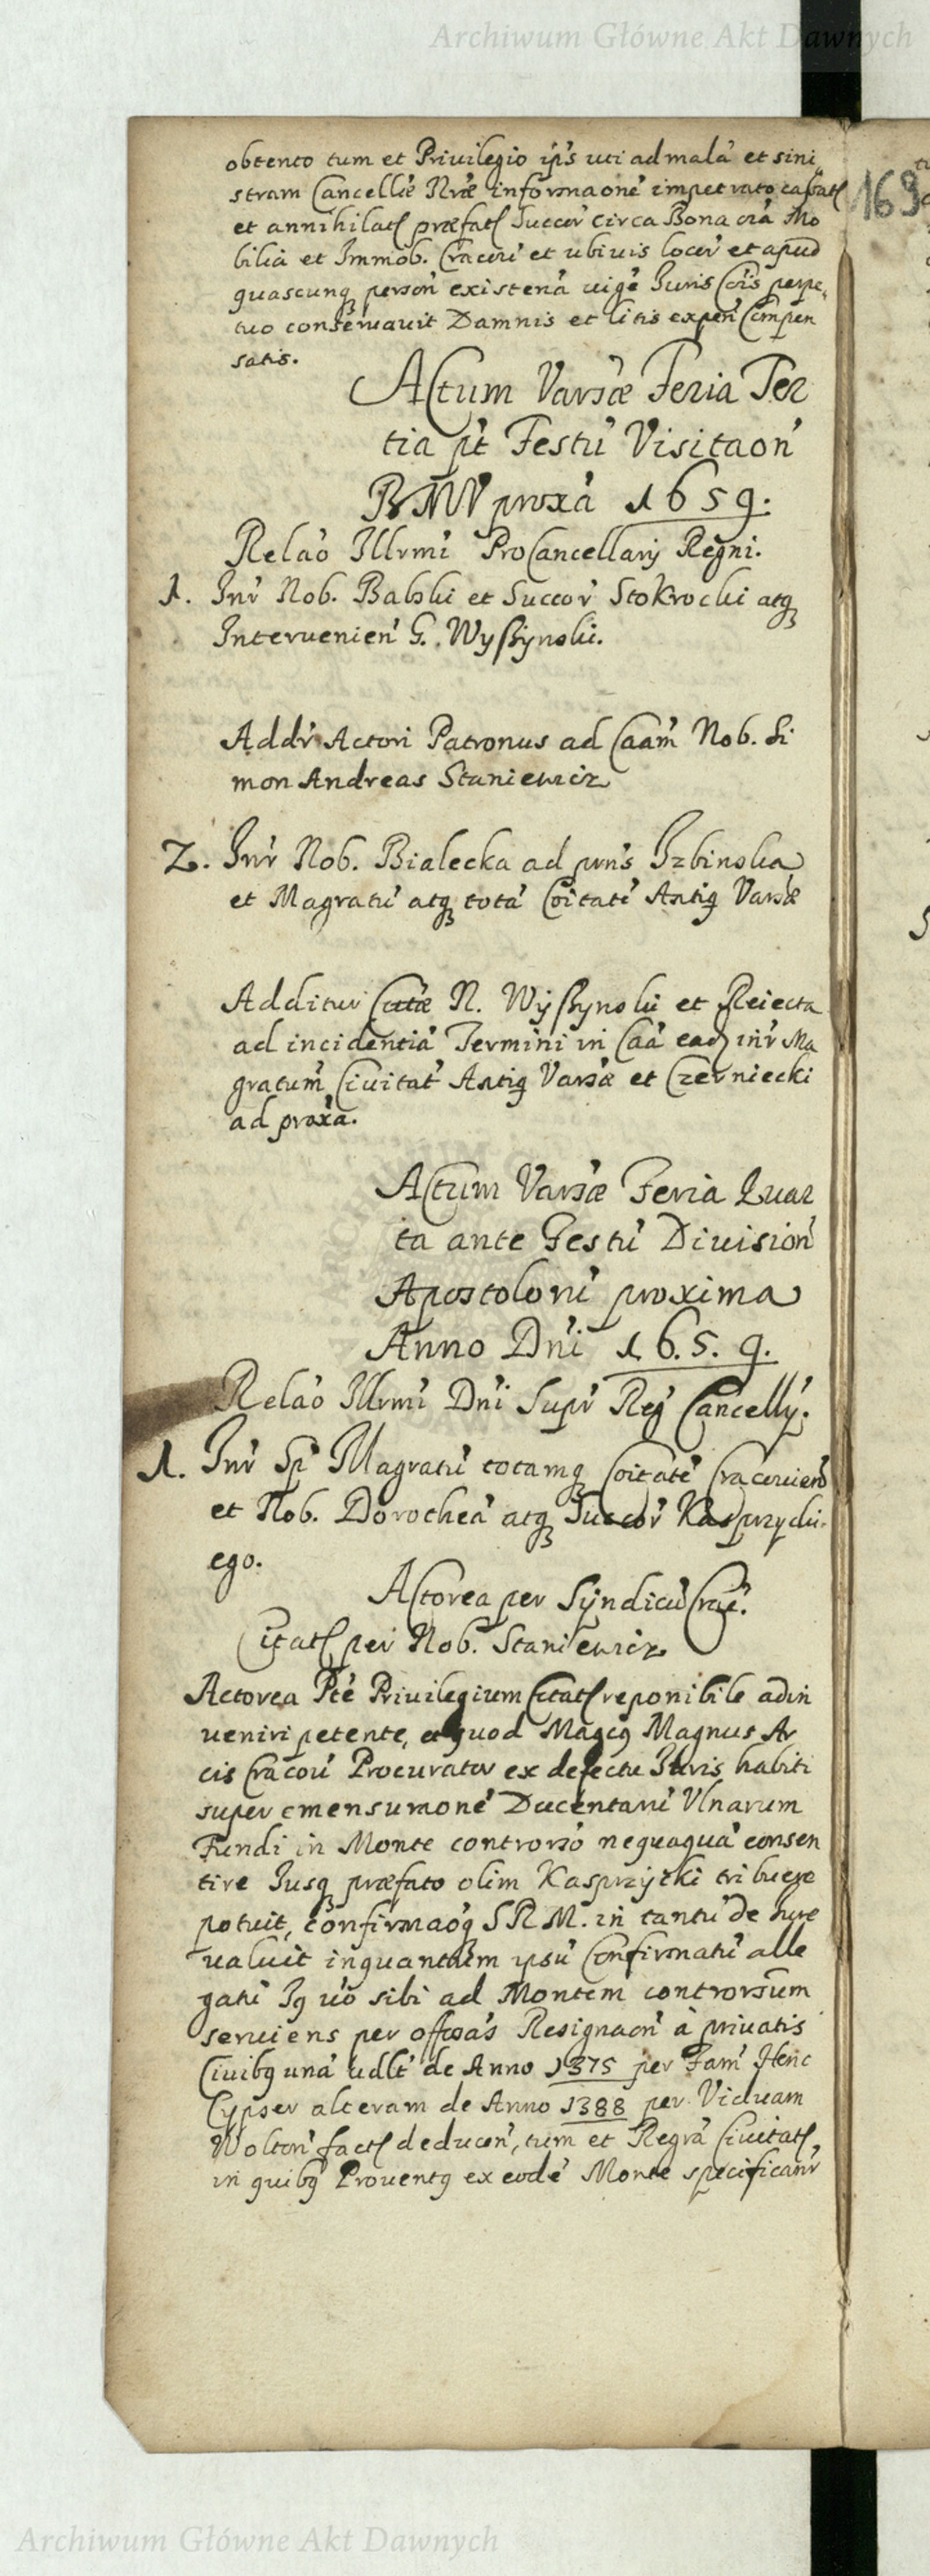 Archiwum Główne Akt Dawnych
obtento tum et Privilegio ip̄s uti ad malā et sini
stram Cancellæ Nræ informaone impetrato cassat
et annihilat præfat Succor circa Bona oīa Mo
bilia et Immob. Cracovi et ubivis locor et apud
quascunq person existenā vige Iuris Cōis perpe
tuo conservavit Damnis et litis expen Compen
satis.
169
Actum Varsæ Feria Ter
tia pt Festū Visitaon
BMV proxā 1659.
Relao Illrmi ProCancellarij Regni.
1. Inr Nob. Balski et Succor Stokrocki atq
Intervenien G. Wyssynski.
Addr Actori Patronus ad Caam Nob. Si
mon Andreas Staniewicz
2. Inr Nob. Bialecka ad prns Izbinska
et Magratū atq totā Coitatē Antiq Varsæ
Additur Citæ N. Wyssynski et Reiecta
ad incidentiā Termini in Caā ead inr Ma
gratum Civitat Antiq Varsæ et Czerniecki
ad proxa.
Actum Varsæ Feria Quar
ta ante Festū Division
Apostolorū proxima
Anno Dni 1.6.5.9.
Relao Illrmi Dni Supr Reg Cancellij.
1. Inr Sp Magratū totamq Coitatē Cracovien
et Nob. Dorotheā atq Succor Kasprzycki
ego.
Actorea per Syndicū Crac.
Citat per Nob. Staniewicz
Actorea Pte Privilegium Citat reponibile adin
veniri petente, et quod Magcq Magnus Ar
cis Cracov Procurator ex defectu Iuris habiti
super emensuraone Ducentarū Ulnarum
Fundi in Monte controrso nequaquā consen
tire Iusq præfato olim Kasprzycki tribuere
potuit, confirmaoq SRM. in tantū de iure
valuit inquantum ipsū Confirmatū alle
gati Iq vo sibi ad Montem controrsum
serviens per offosas Resignaon à privatis
Civibq unā vdlt de Anno 1375 per Fam Henc
Cypser alteram de Anno 1388 per Viduam
Wolton fact deducen, tum et Regra Civitat,
in quibq Proventq ex eodē Monte specificanr
Archiwum Główne Akt Dawnych